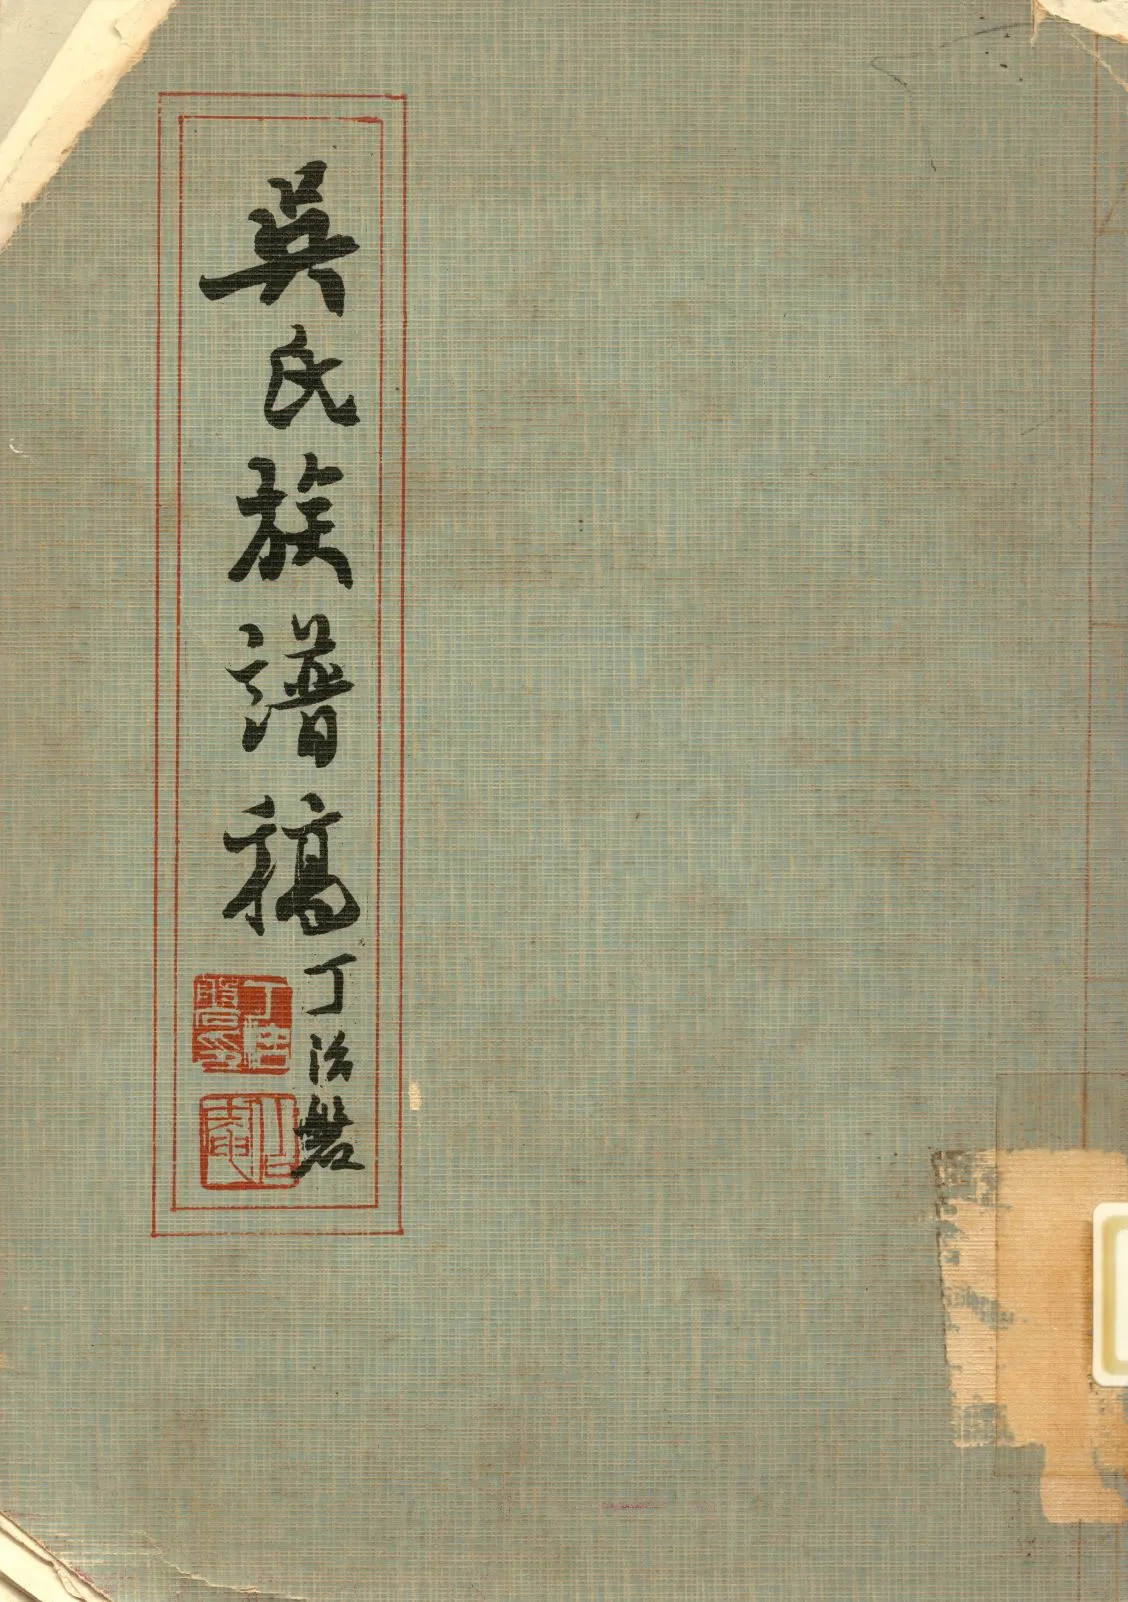 吳氏族譜稿
丁治磐